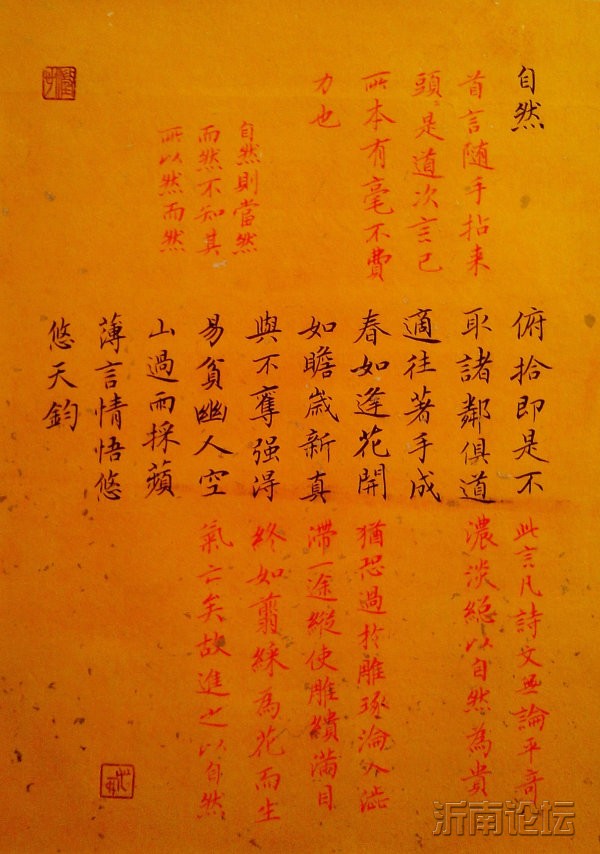 自然
首言随手拈来
頭頭是道次言已
所本有毫不費
力也
自然則當然
而然不知其
所以然而然
俯拾即是不
取諸鄰俱道
適往著手成
春如逢花開
如瞻歲新真
與不奪强得
易貧幽人空
山過雨採蘋
薄言情悟悠
悠天鈞
此言凡詩文無論平奇
濃淡總以自然為貴
猶恐過於雕琢淪入澁
滯一途縱使雕繢滿目
終如翦綵為花而生
氣亡矣故進之以自然
沂南论坛